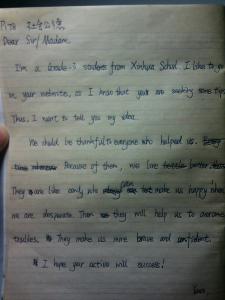 P178 社会公德
Dear Sir/Madam
I'm a Grade-3 students from Xinhua School I like to
on your website, as I know that your are seeking some tips
Thus, I want to tell you my idea.
We should be thankful to everyone who helped us.
Because of them, was love better
They are like candy who often make us happy when
we are desperate. Then they will help us to overcome
troubles. They make us more brave and confident.
I hope your active will success!